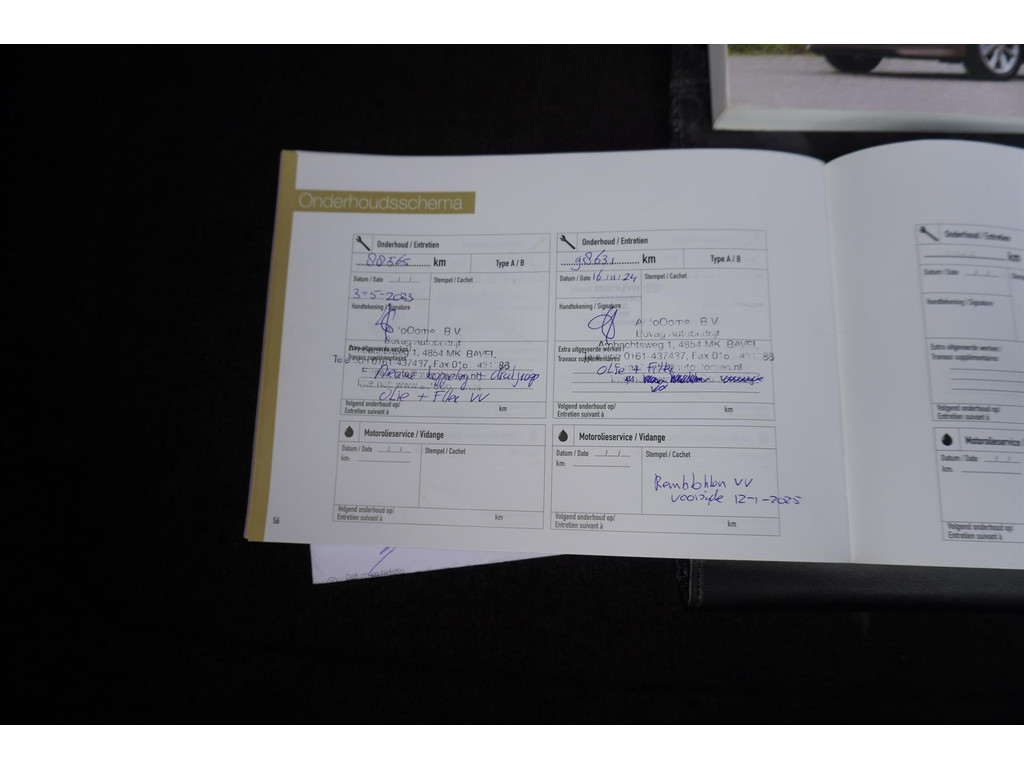 Onderhoudsschema
Onderhoud / Entretien
88565 km
Type A / B
Datum / Date
Stempel / Cachet
3-5-2023
Handtekening / Signature
B.V.
Bovag Autobedrijf
Extra uitgevoerde werken /
Travaux supplémentaires
1, 4854 MK BAVEL
0161-437437, Fax 88
Nieuwe koppeling + druk
olie + Filter VV
Volgend onderhoud op/
Entretien suivant à
km
Onderhoud / Entretien
98631 km
Type A / B
Datum / Date 16/11/24
Stempel / Cachet
Handtekening / Signature
B.V.
Bovag Autobedrijf
Ambachtsweg 1, 4854 MK BAVEL
Extra uitgevoerde werken /
Travaux supplémentaires
0161-437437, Fax 88
olie + Filter
Volgend onderhoud op/
Entretien suivant à
km
Motorolieservice / Vidange
Datum / Date
Stempel / Cachet
km:
Volgend onderhoud op/
Entretien suivant à
km
Motorolieservice / Vidange
Datum / Date
Stempel / Cachet
km:
Remblokken VV
voorzijde 12-1-2025
Volgend onderhoud op/
Entretien suivant à
km
56
Onderhoud / Entretien
km
Datum / Date
Handtekening / Signature
Extra uitgevoerde werken /
Travaux supplémentaires
Volgend onderhoud op/
Entretien suivant à
Motorolieservice
Datum / Date
km:
Volgend onderhoud op/
Entretien suivant à